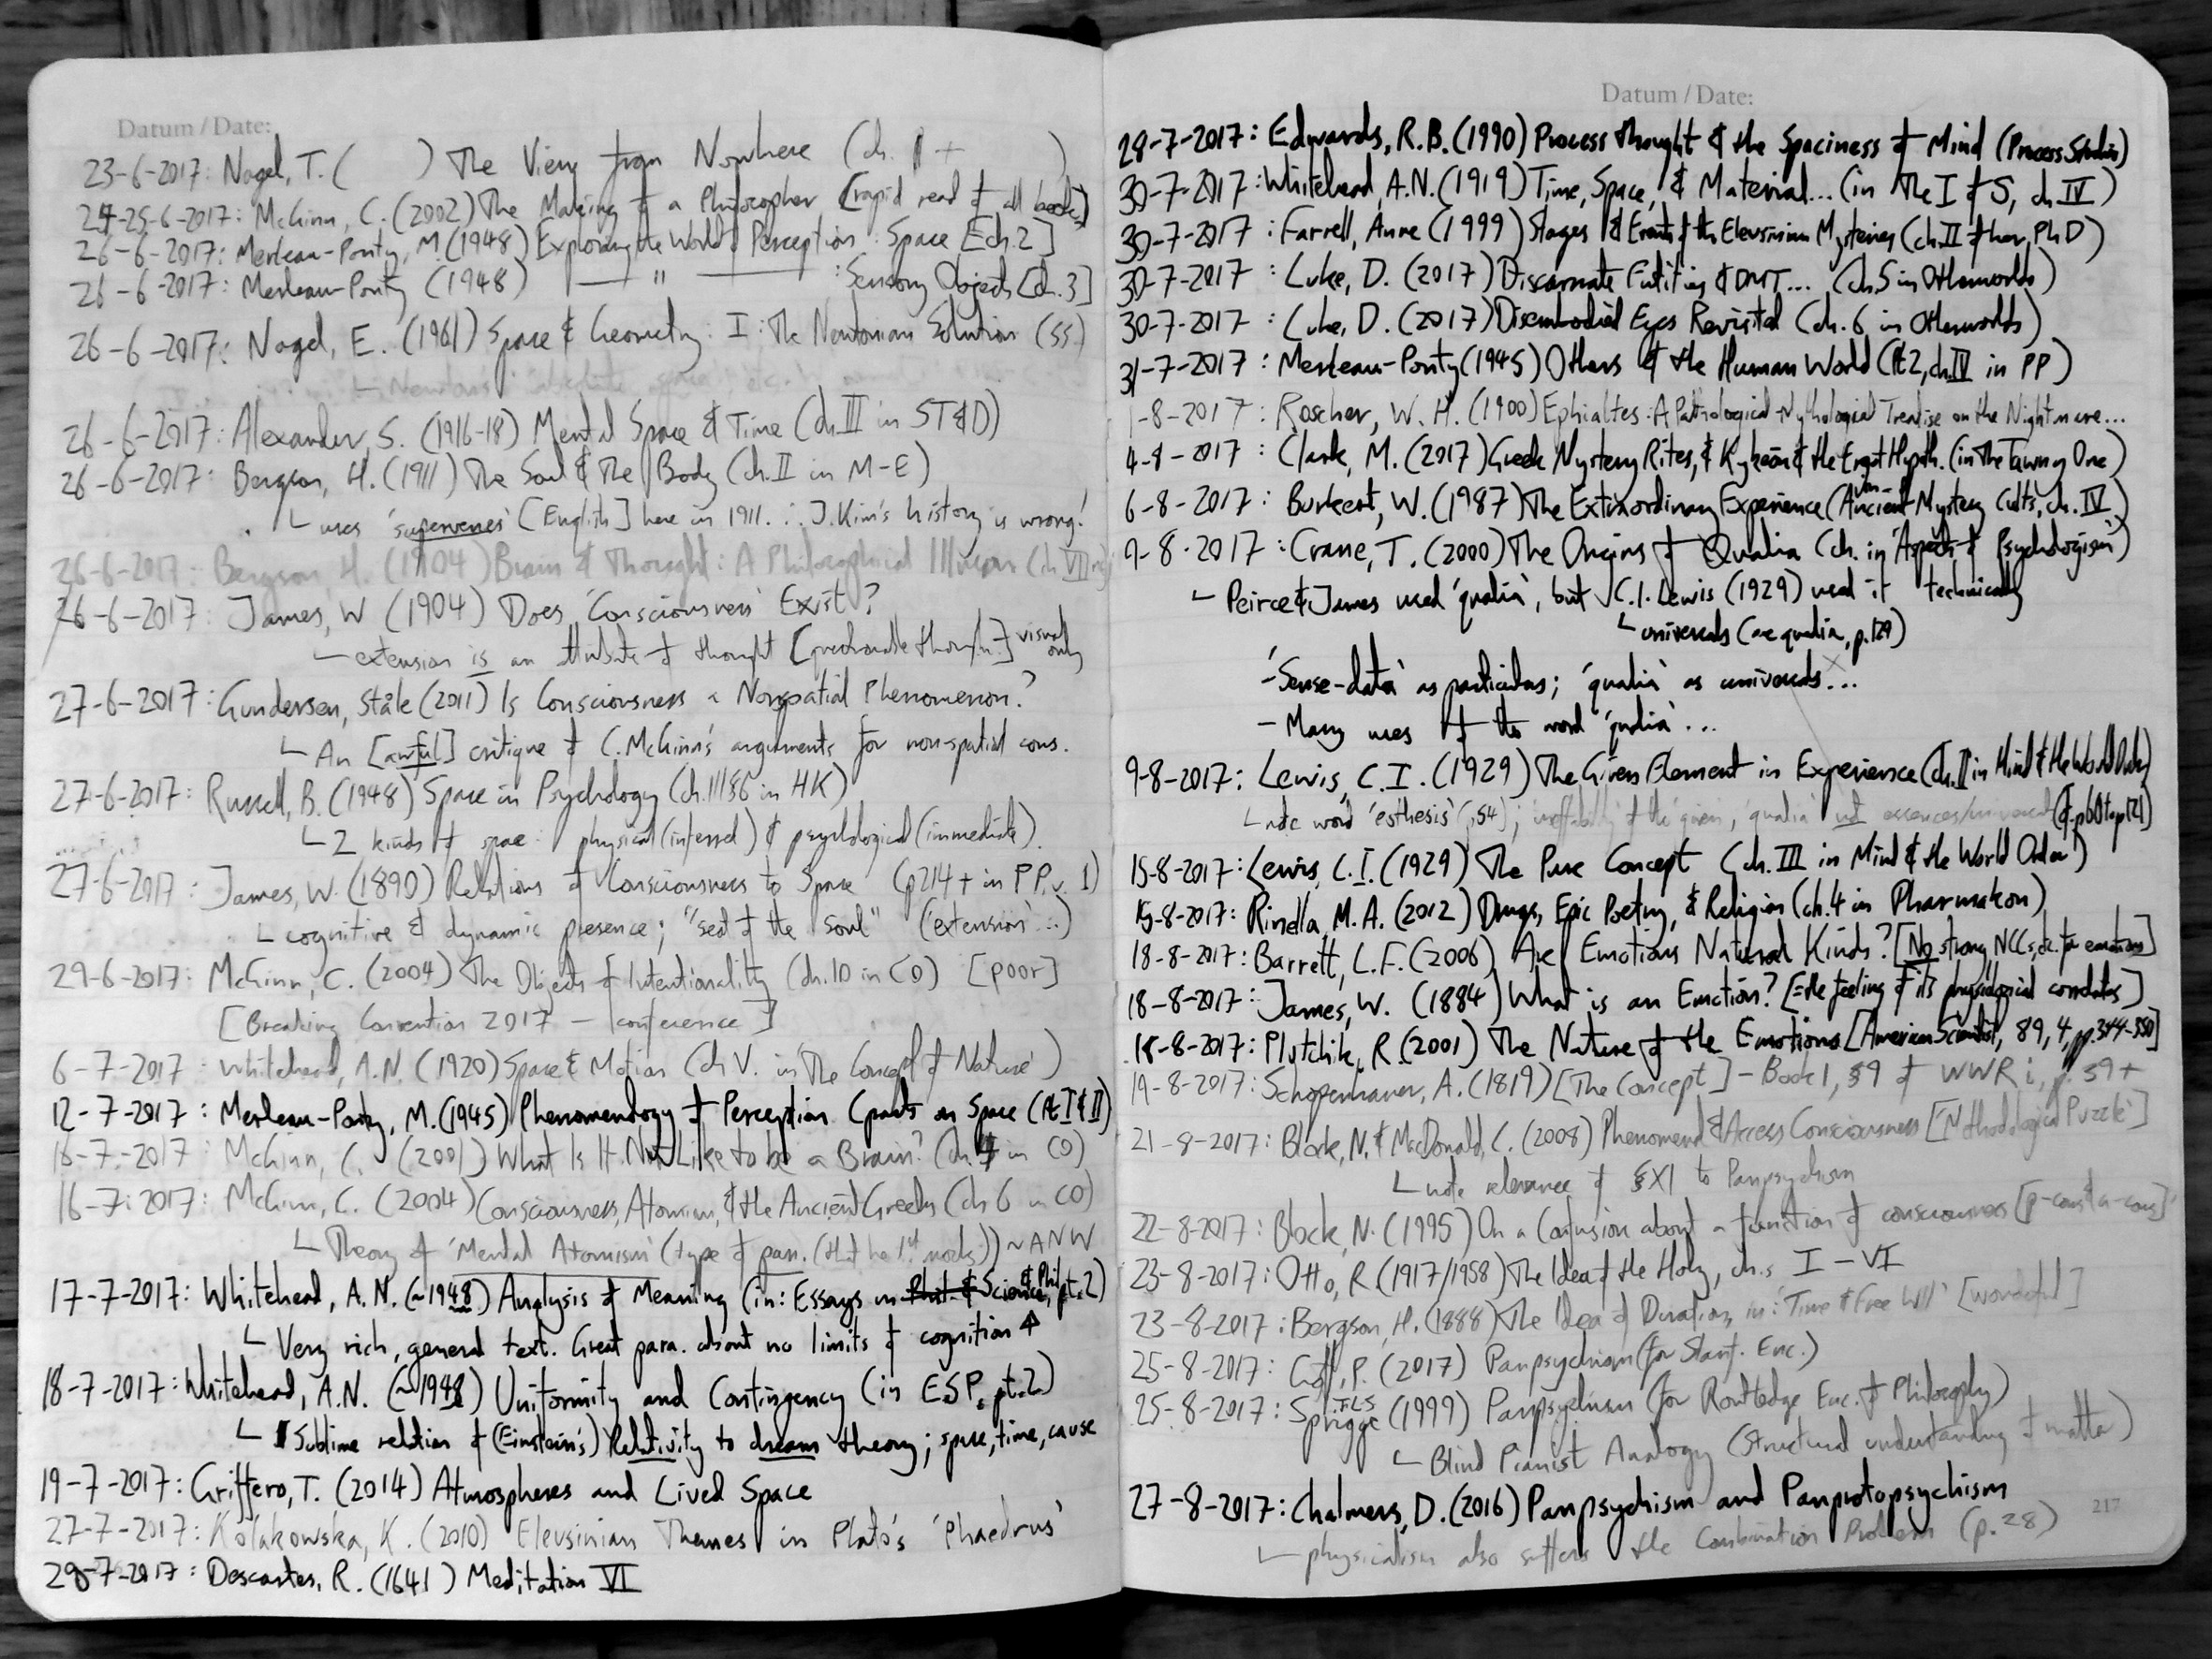 Datum / Date:
23-6-2017: Nagel, T. ( ) The View from Nowhere (ch. + )
24-25-6-2017: McGinn, C. (2002) The Making of a Philosopher (rapid read of all book)
26-6-2017: Merleau-Ponty, M. (1948) Exploring the World of Perception: Space [ch. 2]
26-6-2017: Merleau-Ponty (1948) — " — : Sensory Objects [ch. 3]
26-6-2017: Nagel, E. (1961) Space & Geometry: I: The Newtonian Solution (SS)
26-6-2017: Alexander, S. (1916-18) Mental Space & Time (ch. III in ST&D)
26-6-2017: Bergson, H. (1911) The Soul & The Body (ch. II in M-E)
└ uses 'supervenes' [English] here in 1911. ∴ J. Kim's history is wrong!
26-6-2017: Bergson, H. (1904) Brain & Thought: A Philosophical Illusion (ch VII
26-6-2017: James, W (1904) Does 'Consciousness' Exist?
– extension is an attribute of thought visual only
27-6-2017: Gundersen, Ståle (2011) Is Consciousness a Nonspatial Phenomenon?
└ An [awful] critique of C. McGinn's arguments for non-spatial cons.
27-6-2017: Russell, B. (1948) Space in Psychology (ch. III§6 in HK)
└ 2 kinds of space: physical (inferred) & psychological (immediate).
27-6-2017: James, W. (1890) Relations of Consciousness to Space (p214+ in PP, v. 1)
└ cognitive & dynamic presence; "seat of the soul" ('extension'...)
29-6-2017: McGinn, C. (2004) The Objects of Intentionality (ch. 10 in CO) [poor]
[Breaking Convention 2017 – conference]
6-7-2017: Whitehead, A.N. (1920) Space & Motion (ch V. in 'The Concept of Nature')
12-7-2017: Merleau-Ponty, M. (1945) Phenomenology of Perception (parts on Space (Pt. I & II)
16-7-2017: McGinn, C. (2001) What Is It Not Like to be a Brain? (ch. in CO)
16-7-2017: McGinn, C. (2004) Consciousness, Atomism, & the Ancient Greeks (ch 6 in CO)
└ Theory of 'Mental Atomism' (type of pan. (that he 1st mocks)) ~ANW
17-7-2017: Whitehead, A.N. (~1948) Analysis of Meaning (in: Essays in Science & Phil, pt. 2)
└ Very rich, general text. Great para. about no limits of cognition ↑
18-7-2017: Whitehead, A.N. (~1948) Uniformity and Contingency (in ESP, pt. 2)
└ Sublime relation of (Einstein's) Relativity to dream theory; space, time, cause
19-7-2017: Griffero, T. (2014) Atmospheres and Lived Space
27-7-2017: Kolakowska, K. (2010) Eleusinian Themes in Plato's 'Phaedrus'
28-7-2017: Descartes, R. (1641) Meditation VI
Datum / Date:
28-7-2017: Edwards, R.B. (1990) Process Thought & the Spaciness of Mind (Process Studies)
30-7-2017: Whitehead, A.N. (1919) Time, Space, & Material... (in The I & S, ch IV)
30-7-2017: Farrell, Anne (1999) Stages & Events of the Eleusinian Mysteries (ch. II of her PhD)
30-7-2017: Luke, D. (2017) Discarnate Entities & DMT... (ch. 5 in Otherworlds)
30-7-2017: Luke, D. (2017) Disembodied Eyes Revisited (ch. 6 in Otherworlds)
31-7-2017: Merleau-Ponty (1945) Others & the Human World (Pt 2, ch. IV in PP)
1-8-2017: Roscher, W. H. (1900) Ephialtes: A Pathological-Mythological Treatise on the Nightmare...
4-8-2017: Clark, M. (2017) Greek Mystery Rites, & Kykeon & the Ergot Hypoth. (in The Tawny One)
6-8-2017: Burkert, W. (1987) The Extraordinary Experience (Ancient Mystery Cults, ch. IV)
9-8-2017: Crane, T. (2000) The Origins of Qualia (ch. in
└ Peirce & James used 'qualia', but C.I. Lewis (1929) used it technically
└ universals (are qualia, p. 129)
- 'Sense-data' as particulars; 'qualia' as universals...
- Many uses of the word 'qualia'...
9-8-2017: Lewis, C.I. (1929) The Given Element in Experience (ch. II in Mind & the World Order)
└ note word 'esthesis' (p54); ineffability of the given, 'qualia' not essences/universals
15-8-2017: Lewis, C.I. (1929) The Pure Concept (ch. III in 'Mind & the World Order')
15-8-2017: Rinella, M.A. (2012) Drugs, Epic Poetry, & Religion (ch. 4 in Pharmakon)
18-8-2017: Barrett, L.F. (2006) Are Emotions Natural Kinds? [No strong NCCs, etc. for emotions]
18-8-2017: James, W. (1884) What is an Emotion? [= the feeling of its physiological correlates]
18-8-2017: Plutchik, R (2001) The Nature of the Emotions [American Scientist, 89, 4, pp. 344-350]
19-8-2017: Schopenhauer, A. (1819) [The Concept] – Book 1, §9 of WWR i, p. 39+
21-8-2017: Block, N. & MacDonald, C. (2008) Phenomenal & Access Consciousness ['Methodological Puzzle']
└ note relevance of §XI to Panpsychism
22-8-2017: Block, N. (1995) On a Confusion about a function of consciousness [p-cons & a-cons]
23-8-2017: Otto, R (1917/1958) The Idea of the Holy, ch.s I – VI
23-8-2017: Bergson, H. (1888) The Idea of Duration, in: 'Time & Free Will' [wonderful]
25-8-2017: Goff, P. (2017) Panpsychism (for Stanf. Enc.)
25-8-2017: Sprigge T.L.S (1999) Panpsychism (for Routledge Enc. of Philosophy)
└ Blind Pianist Analogy (structural understanding of matter)
27-8-2017: Chalmers, D. (2016) Panpsychism and Panprotopsychism
└ physicalism also suffers the Combination Problem (p. 28)
217